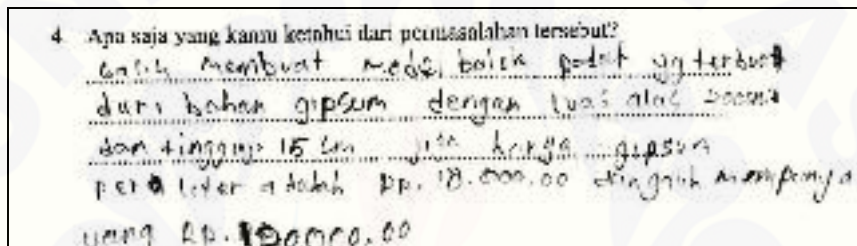 4. Apa saja yang kamu ketahui dari permasalahan tersebut?
membuat model balok padat yg terbuat
dari bahan gipsum dengan luas alas
dan tingginya 15 cm jika harga gipsum
per liter adalah Rp. 18.000,00
uang Rp.